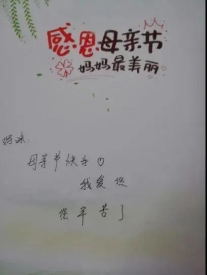 感恩母亲节
妈妈最美丽
妈妈:
母亲节快乐♡
我爱您
您辛苦了